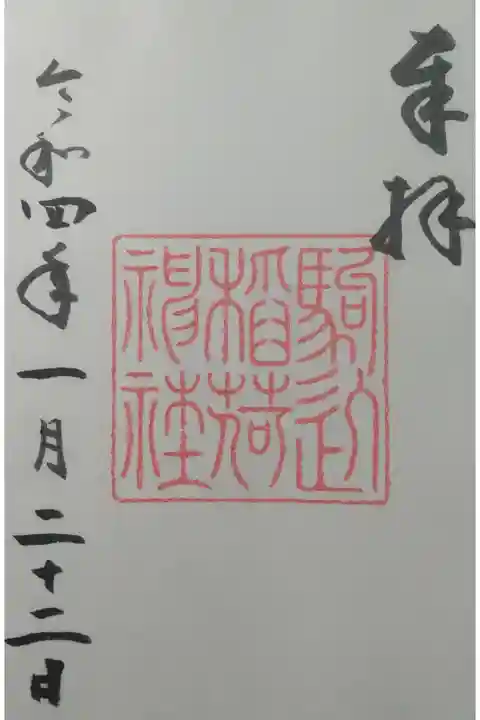 奉拝
駒込
稲荷
神社
令和四年一月二十二日